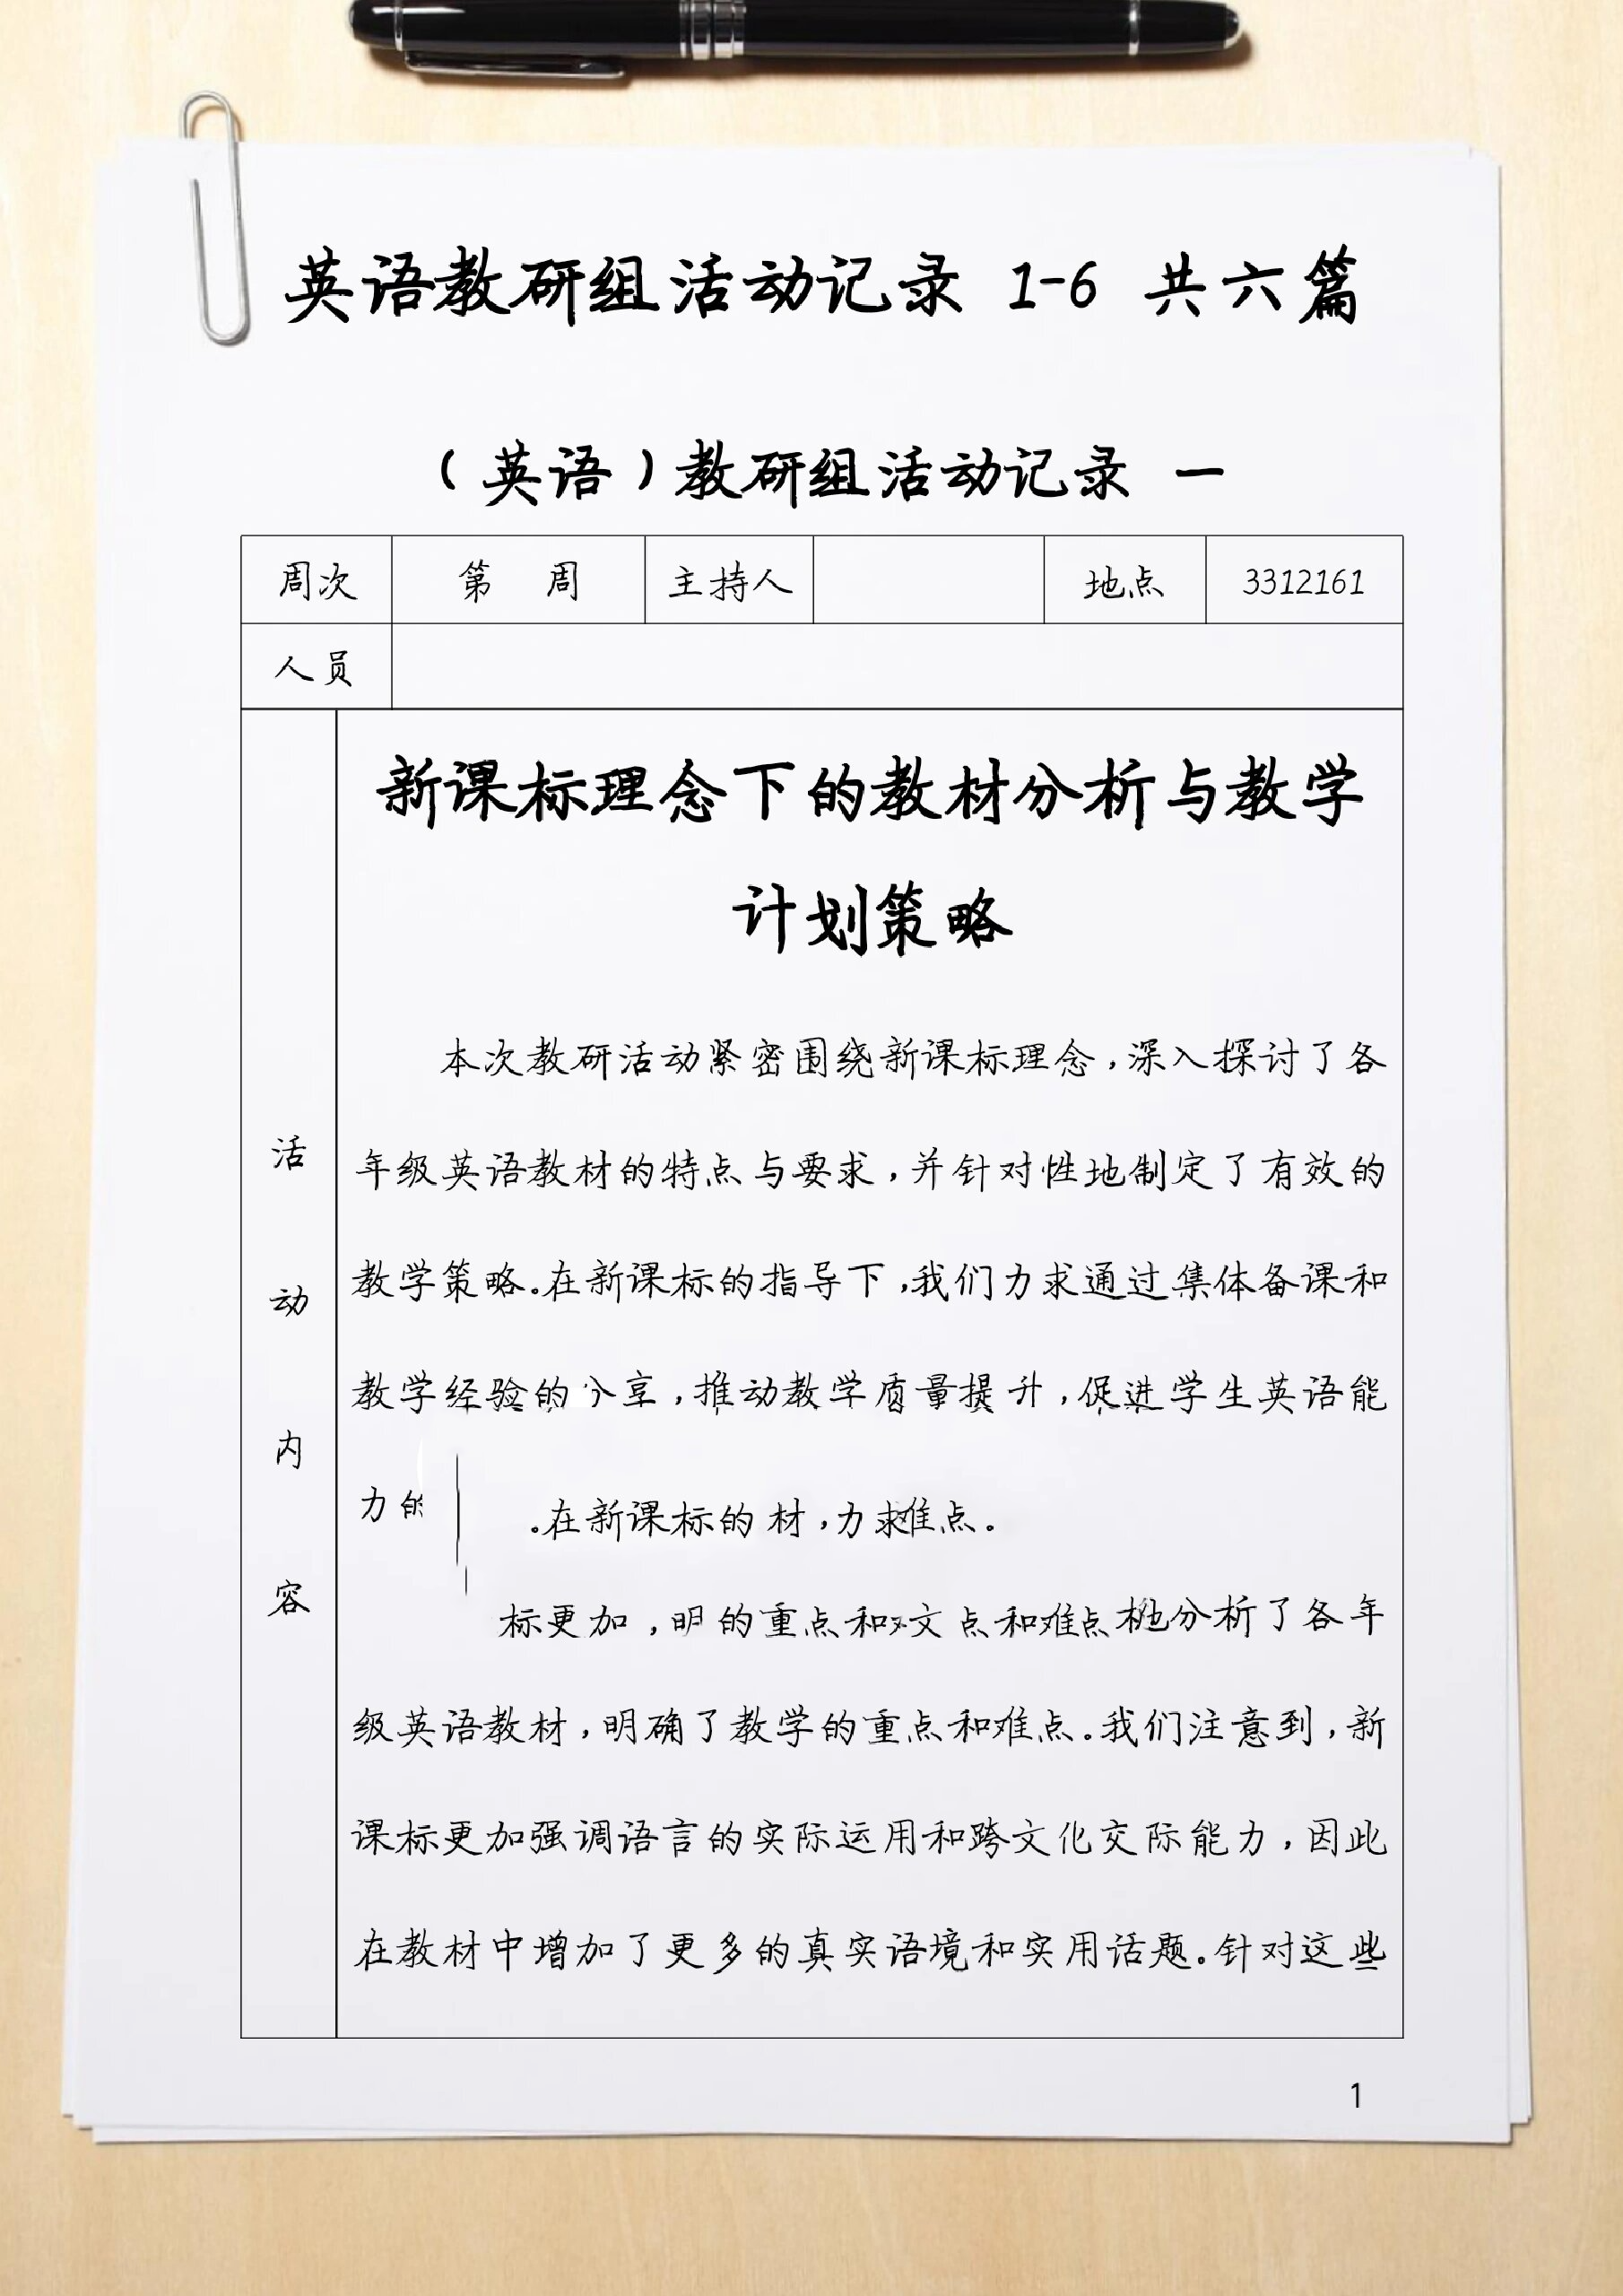 英语教研组活动记录 1-6 共六篇
（英语）教研组活动记录 一
周次 第 周 主持人 地点 3312161
人员
活动内容
新课标理念下的教材分析与教学
计划策略
本次教研活动紧密围绕新课标理念，深入探讨了各
年级英语教材的特点与要求，并针对性地制定了有效的
教学策略。在新课标的指导下，我们力求通过集体备课和
教学经验的分享，推动教学质量提升，促进学生英语能
力的
。在新课标的 材，力求难点。
标更加，明的重点和 文点和难点 地分析了各年
级英语教材，明确了教学的重点和难点。我们注意到，新
课标更加强调语言的实际运用和跨文化交际能力，因此
在教材中增加了更多的真实语境和实用话题。针对这些
1